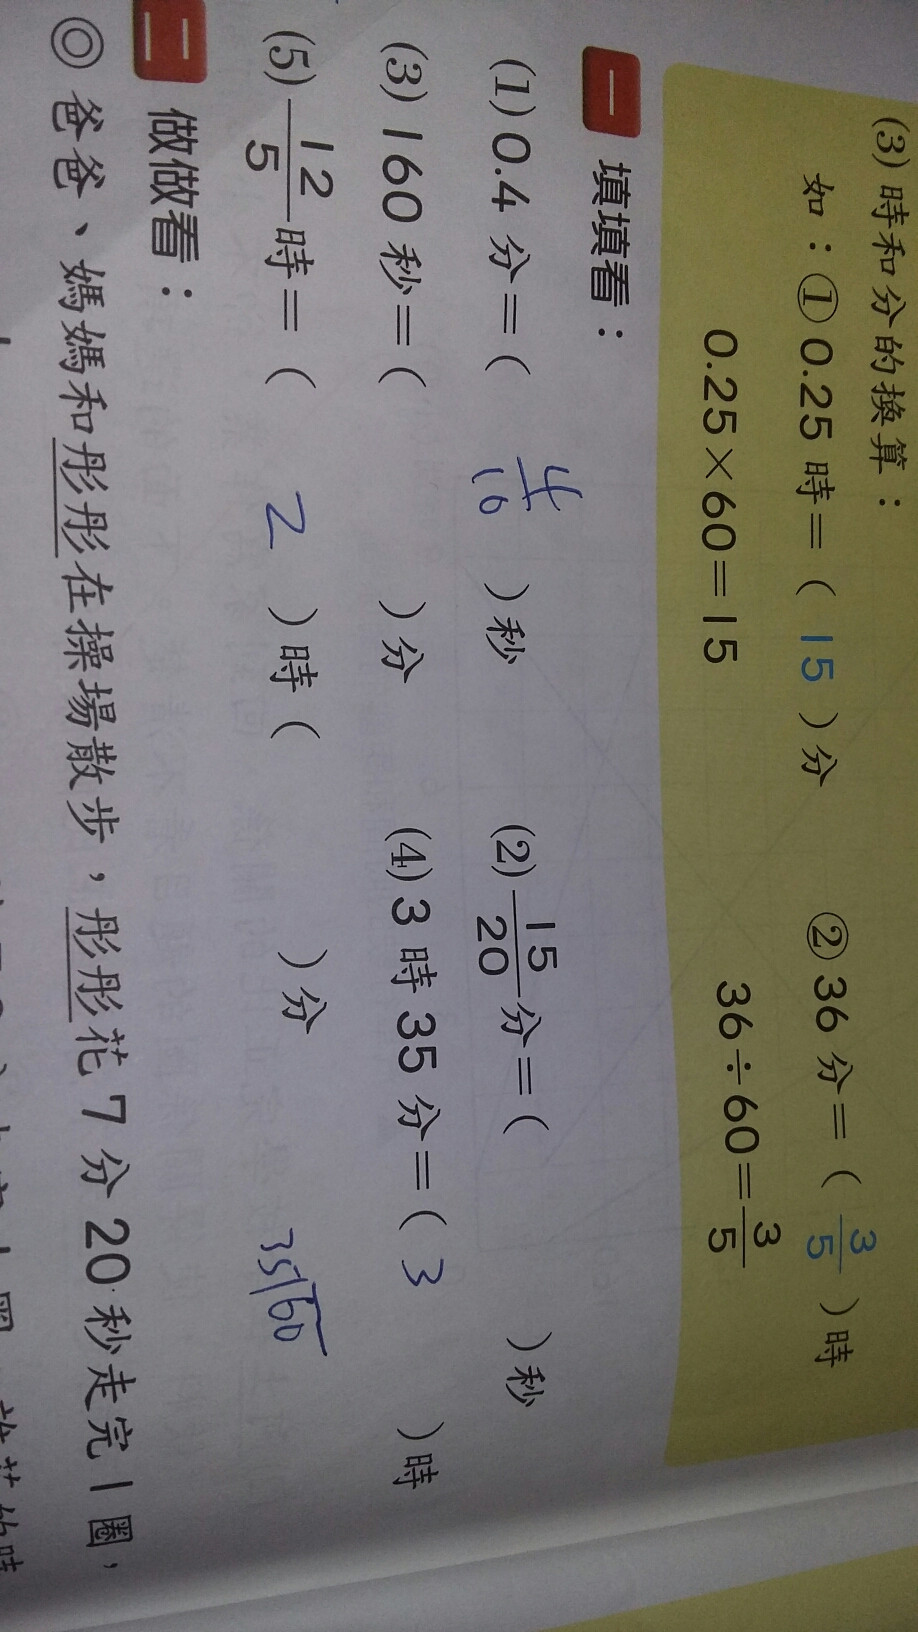 (3) 時和分的換算：
如：①0.25 時＝（ 15 ）分 ②36 分＝（ 3/5 ）時
0.25×60＝15 36÷60＝3/5
一 填填看：
(1) 0.4 分＝（ 4/10 ）秒 (2) 15/20 分＝（ ）秒
(3) 160 秒＝（ ）分 (4) 3 時 35 分＝（ 3 ）時
(5) 12/5 時＝（ 2 ）時（ ）分 35)60
二 做做看：
◎ 爸爸、媽媽和彤彤在操場散步，彤彤花 7 分 20 秒走完 1 圈，